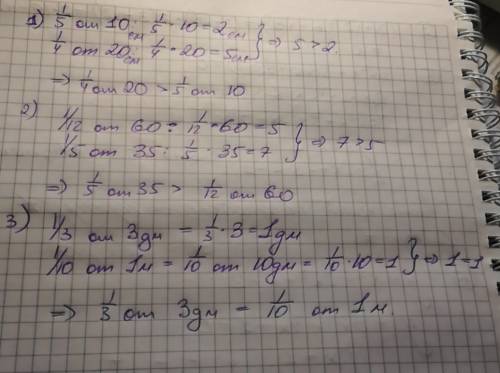 1) 1/5 от 10 см: 1/5 · 10 = 2 см
1/4 от 20 см: 1/4 · 20 = 5 см } ⇒ 5 > 2.
⇒ 1/4 от 20 > 1/5 от 10
2) 1/12 от 60 = 1/12 · 60 = 5
1/5 от 35 : 1/5 · 35 = 7 } ⇒ 7 > 5
⇒ 1/5 от 35 > 1/12 от 60
3) 1/3 от 3дм = 1/3 · 3 = 1дм
1/10 от 1м = 1/10 от 10дм = 1/10 · 10 = 1 } ⇒ 1 = 1
⇒ 1/3 от 3дм = 1/10 от 1м.